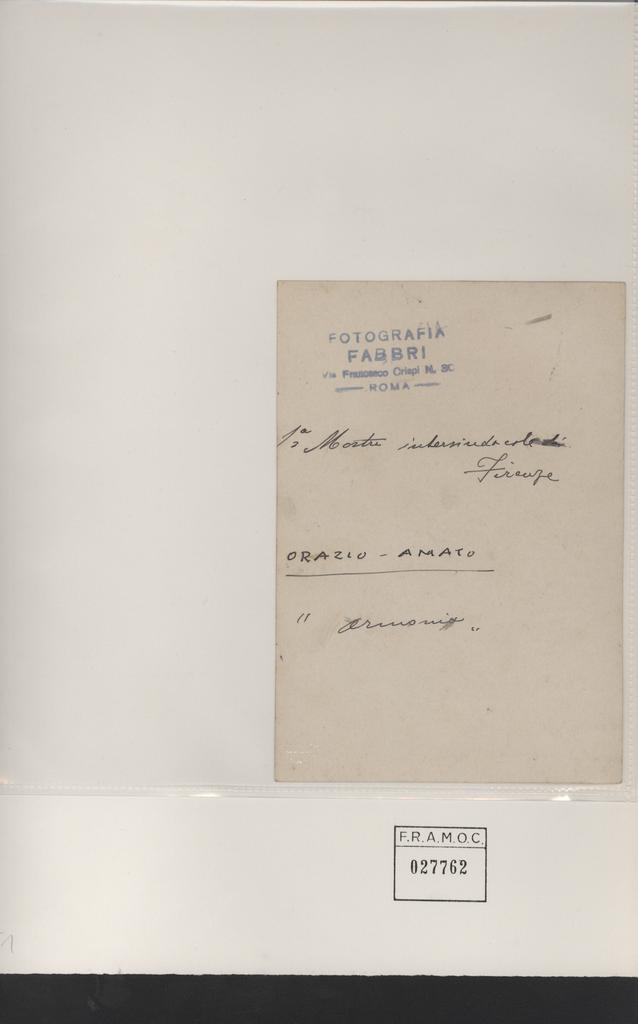 FOTOGRAFIA
FABBRI
Via Francesco Crispi N. 30
ROMA
1ª Mostra intersindacale di
Firenze
ORAZIO - AMATO
" Armonia "
F.R.A.M.O.C.
027762